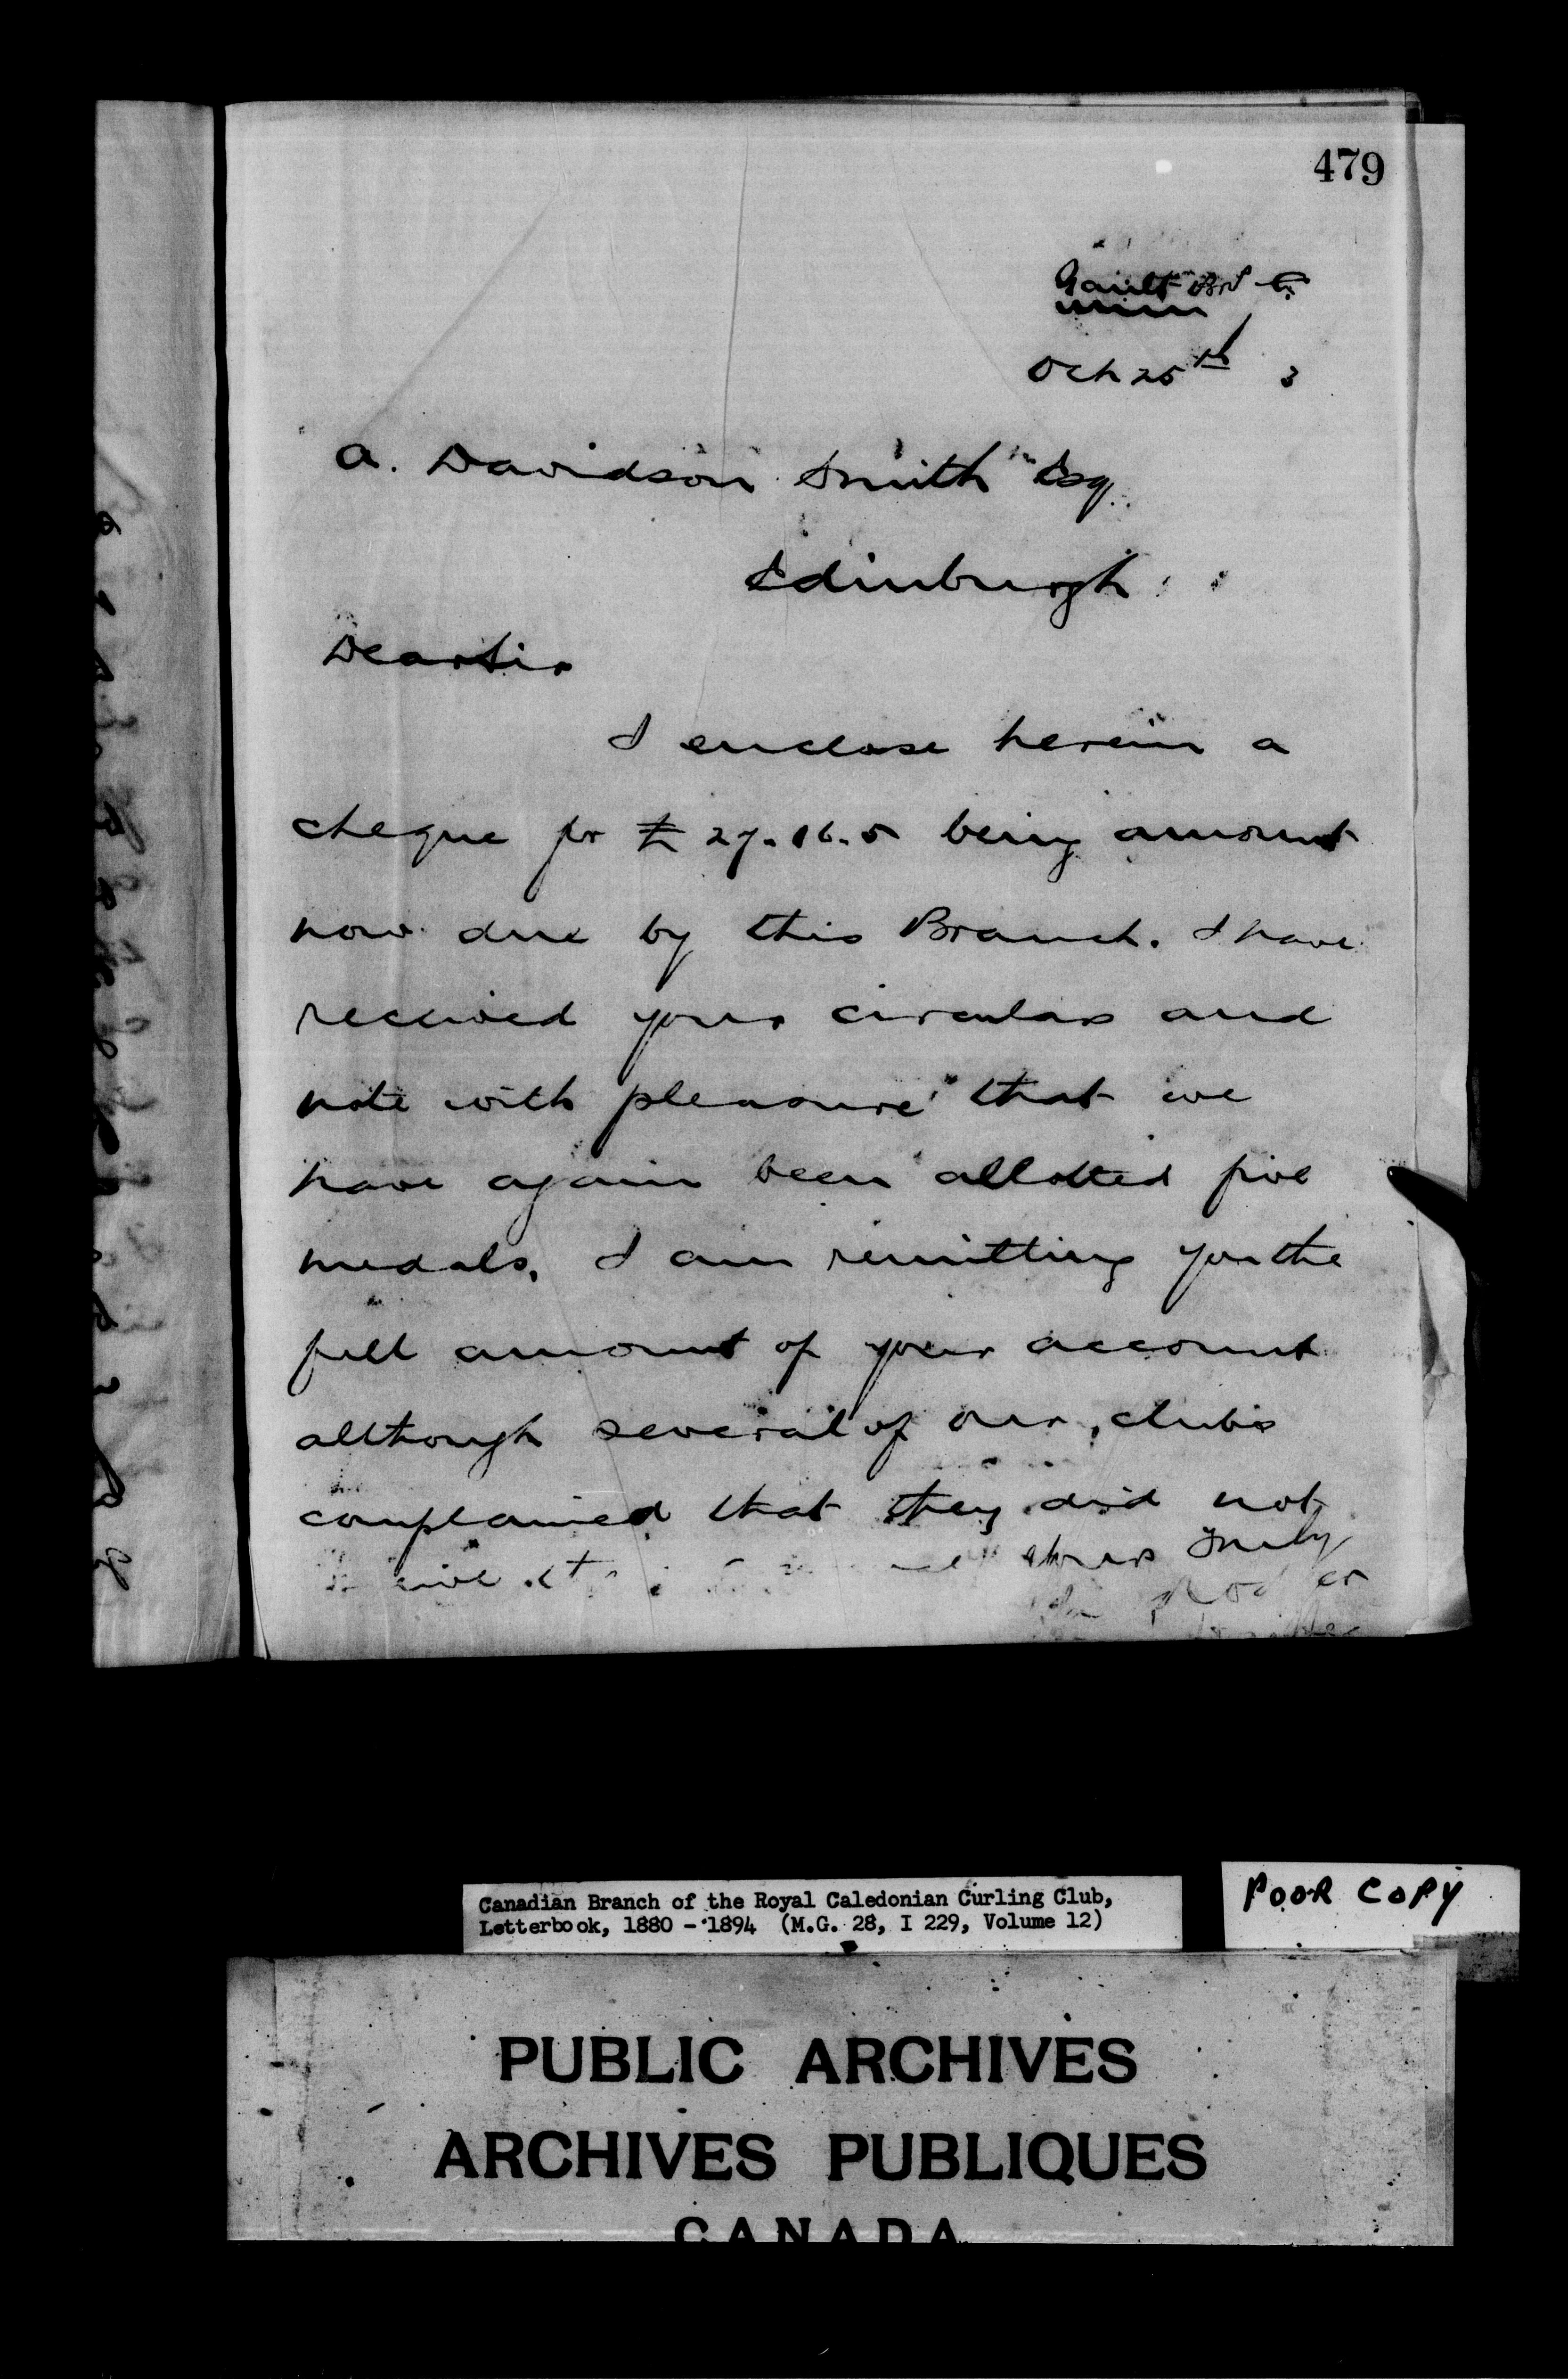 479
Gault Bros Co.
Oct 25th 3
A. Davidson Smith Esq.
Edinburgh
Dear Sir
I enclose herein a
cheque for £ 27.16.5 being amount
now due by this Branch. I have
received your circular and
note with pleasure that we
have again been allotted five
medals. I am remitting you the
full amount of your account
although several of our clubs
complained that they did not
yours truly
Canadian Branch of the Royal Caledonian Curling Club,
Letterbook, 1880 - 1894 (M.G. 28, I 229, Volume 12)
POOR COPY
PUBLIC ARCHIVES
ARCHIVES PUBLIQUES
CANADA